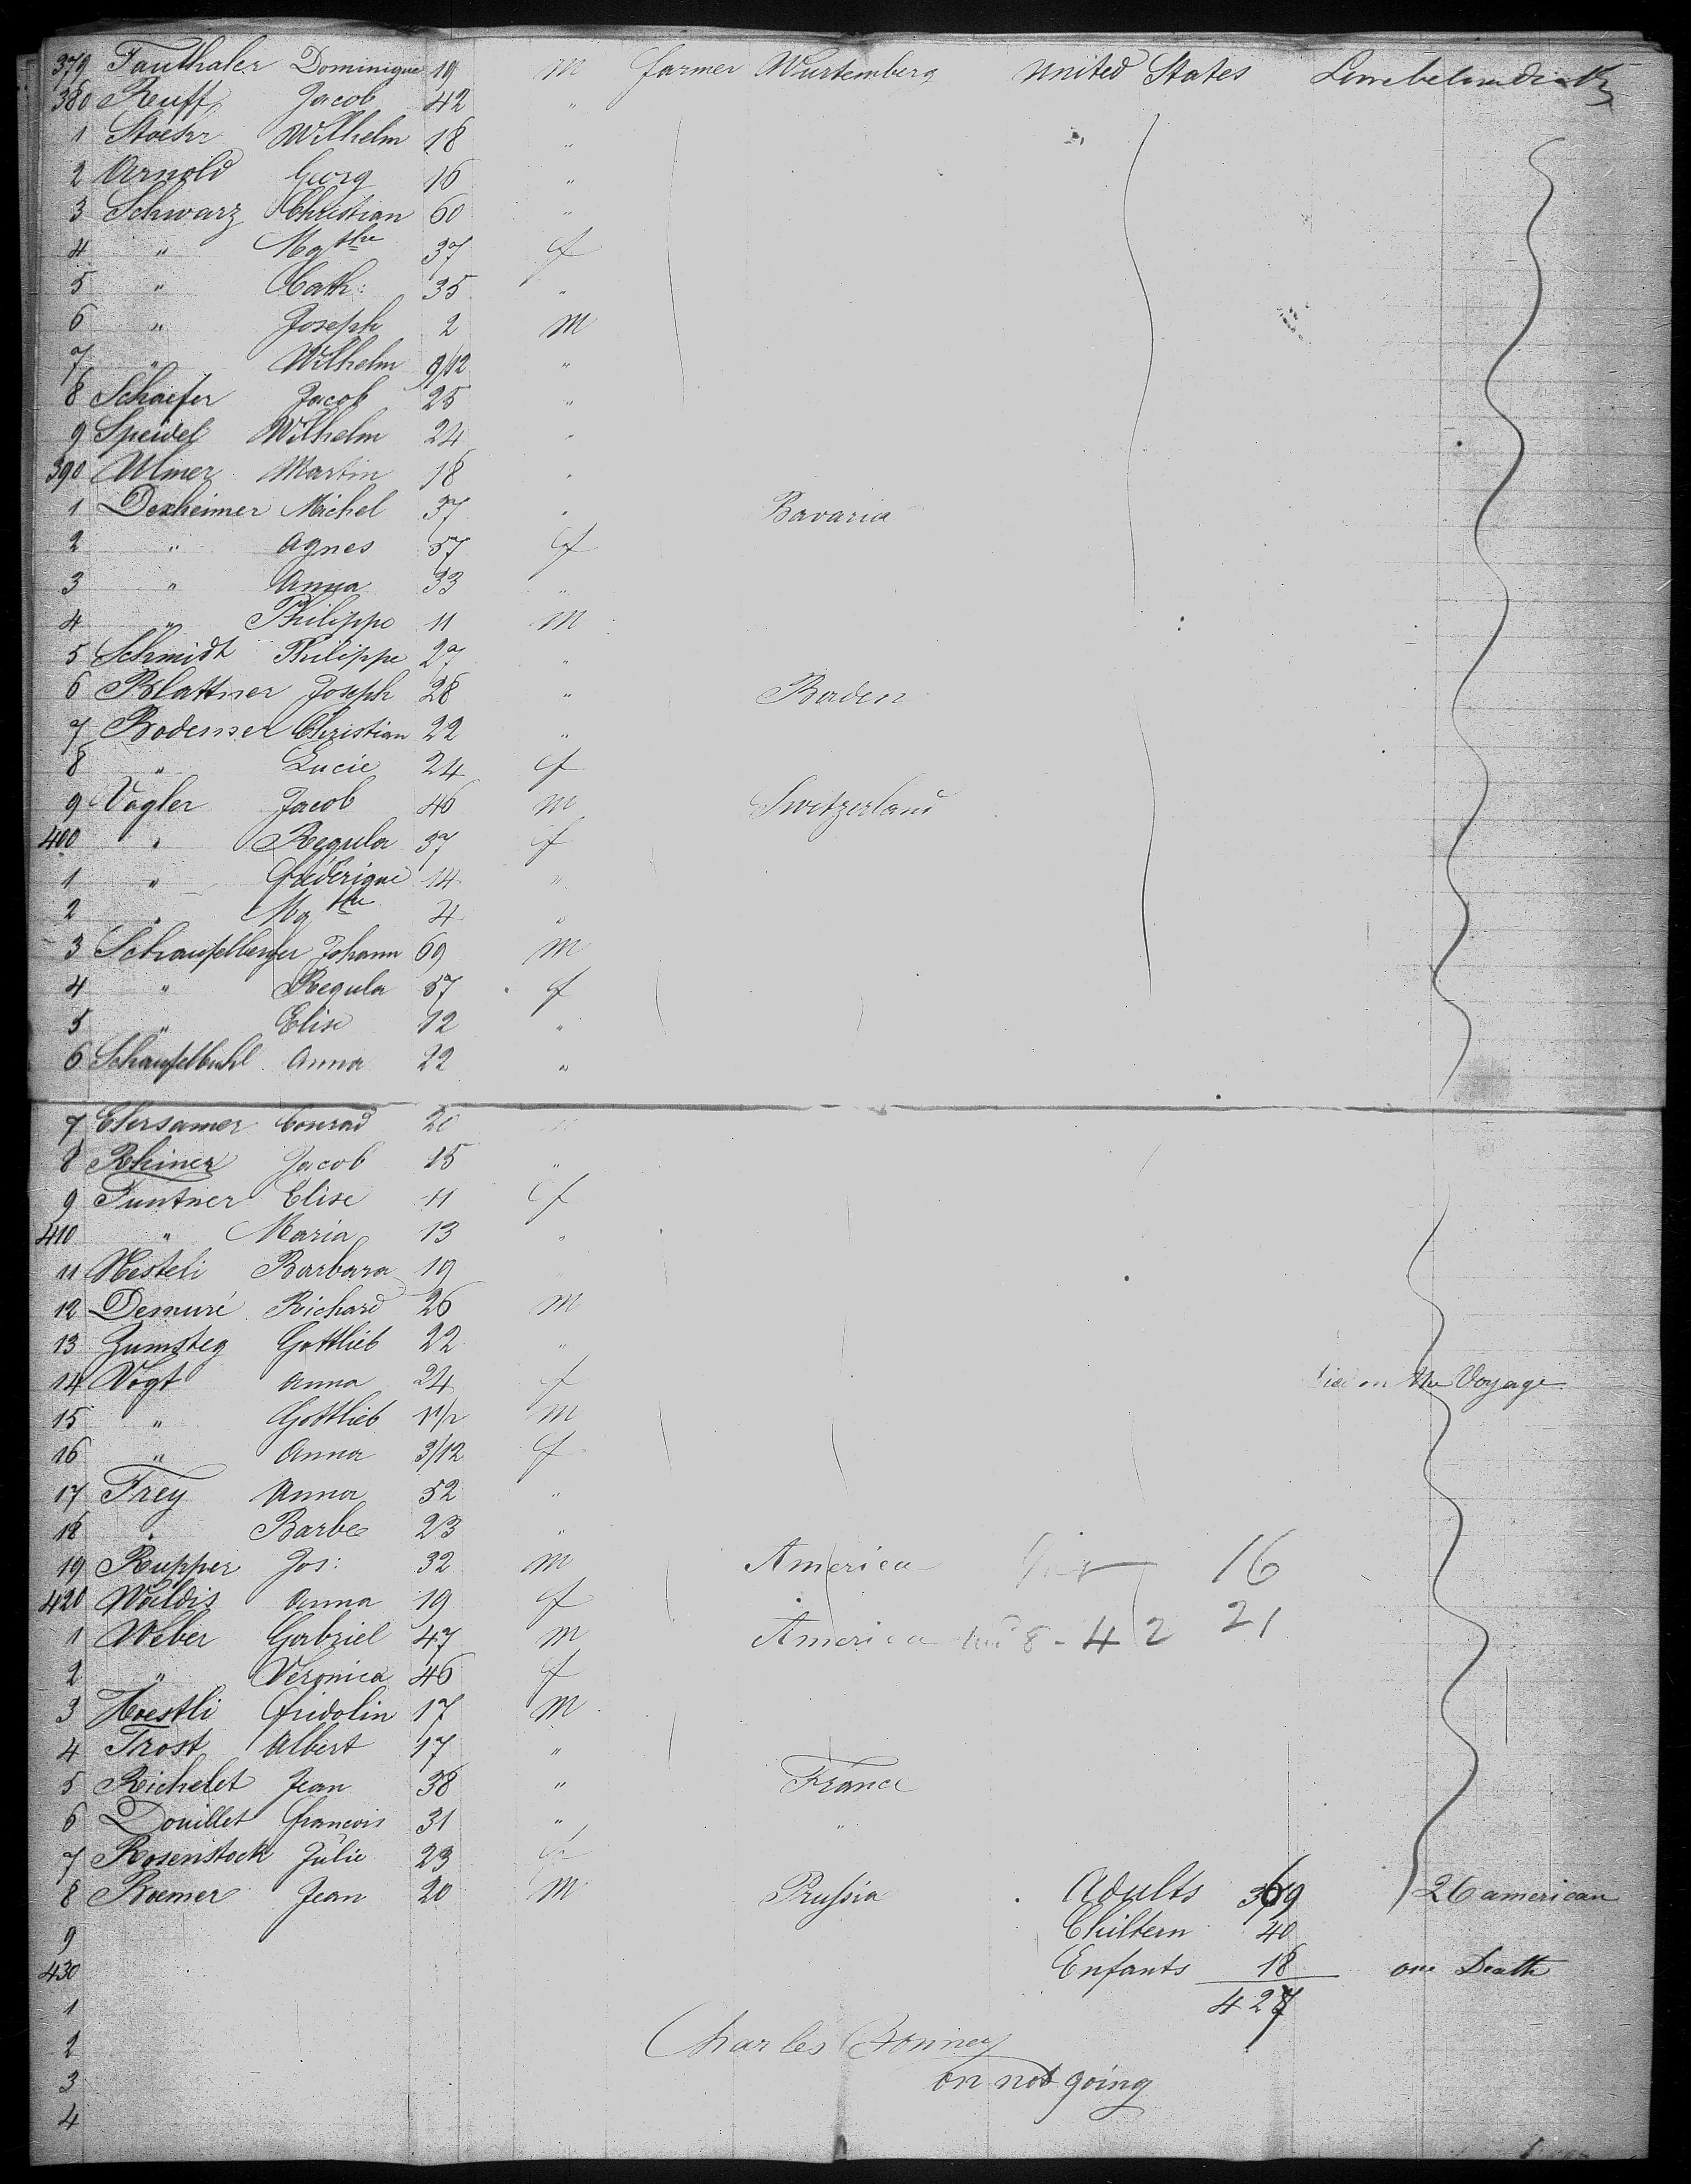 379 Fauthaler Dominique 19 m farmer Wurtemberg United States
380 Reuff Jacob 42 "
1 Stoehr Wilhelm 18 "
2 Arnold Georg 16 "
3 Schwarz Christian 60 "
4 " Mgthe 37 f
5 " Cath: 35 "
6 " Joseph 2 m
7 " Wilhelm 9/12 "
8 Schaefer Jacob 25 "
9 Speidel Wilhelm 24 "
390 Ulmer Martin 18 "
1 Dexheimer Michel 37 " Bavaria
2 " Agnes 57 f
3 " Anna 33 "
4 " Philippe 11 m
5 Schmidt Philippe 27 "
6 Blattner Joseph 28 " Baden
7 Bodemer Christian 22 "
8 " Lucie 24 f
9 Vogler Jacob 46 m Switzerland
400 " Regula 37 f
1 " fréderique 14 "
2 " Mgthe 4 "
3 Schaufelberger Johann 69 m
4 " Regula 57 f
5 " Elise 12 "
6 Schaufelbuhl Anna 22 "
7 Ehrsamer Conrad 20
8 Rhiner Jacob 15 "
9 Funtner Elise 11 f
410 " Maria 13 "
11 Nesteli Barbara 19
12 Demuré Richard 26 m
13 Zumsteg Gottlieb 22 "
14 Vogt Anna 24 f on the Voyage
15 " Gottlieb 1 1/2 m
16 " Anna 3/12 f
17 Frey Anna 52 "
18 " Barbe 23 "
19 Rupper Jos: 32 m America 16
420 Waldis Anna 19 f
1 Weber Gabriel 47 m America 8-42 21
2 " Veronica 46 f
3 Hoestli fridolin 17 m
4 Trost Albert 17 "
5 Richelet Jean 38 " France
6 Douillet francois 31 " "
7 Rosenstock Julie 23 f
8 Roemer Jean 20 m Prussia Adults 369 26 american
9 Chiltern 40
430 Enfants 18 one Death
1 427
2 Charles Bonney
3 on not going
4